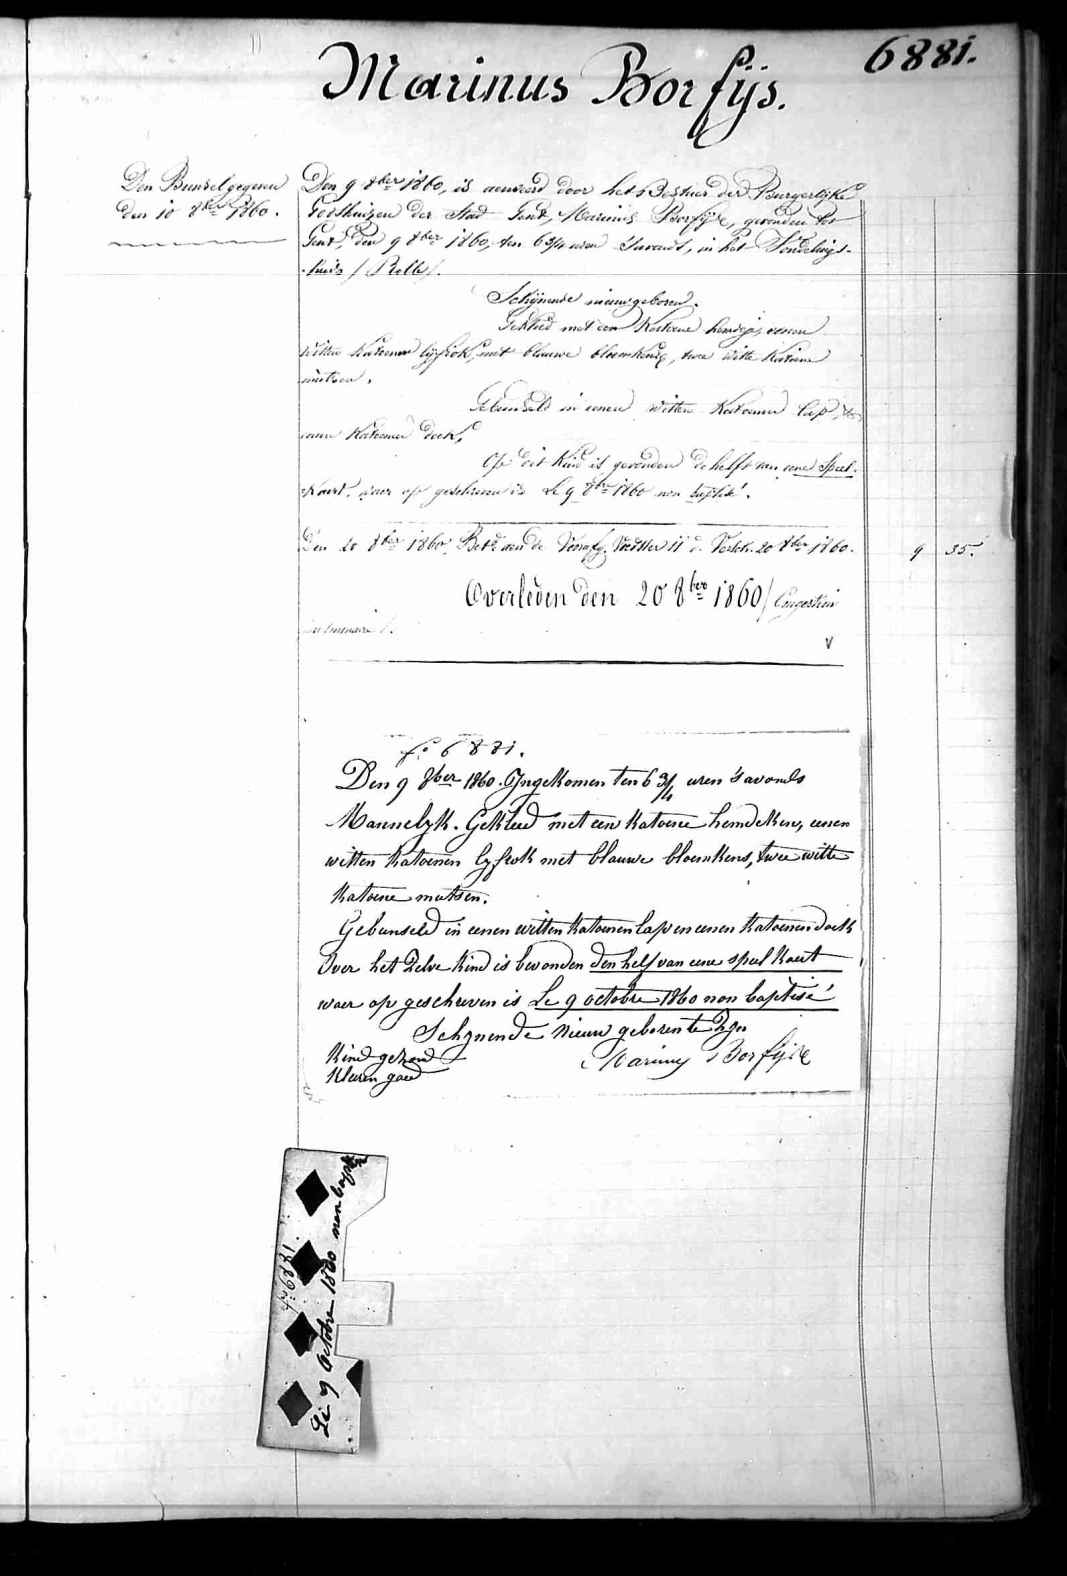 6881.
Marinus Borfijs.
Den Bunsel gegeven
den 10 8ber 1860.
Den 9 8ber 1860, is aenveerd door het Bestuer der Burgerlijke
Godshuizen der Stad Gent, Marinus Borfijs, gevonden tot
Gent, den 9 8ber 1860, ten 6 3/4 uren 'savonds, in het Vondelings-
huis /
Schijnende nieuwgeboren.
Gekleed met een Katoene hemdeje, eenen
witten Katoenen lyfrok, met blauwe bloemkens, twee witte Katoene
mutsen.
Gebunseld in eenen witten Katoenen lap, en
eenen Katoenen doek.
Op dit Kind is gevonden de helft van eene Speel-
Kaert, waer op geschreven is Le 9 8bre 1860 non baptisé.
Den 20 8ber 1860, Bet. aen de 20 8ber 1860.
9 35.
Overleden den 20 8ber 1860 / Congestion
f.º 6881.
Den 9 8ber 1860. Yngekomen ten 6 3/4 uren 'savonds
Mannelyk. Gekleed met een Katoene hemdeken, eenen
witten Katoenen lyfrok met blauwe bloemkens, twee witte
Katoene mutsen.
Gebunseld in eenen witten Katoenen lap en eenen Katoenen doek
Over het Zelve Kind is bevonden den helf van eene speel Kaert
waer op geschreven is Le 9 octobre 1860 non baptisé
Schynende Nieuw geboren te Zyn
Kind gezond
Marinus Borfijs
Kleeren goed
fº 6881.
Le 9 Octobre 1860 non baptisé